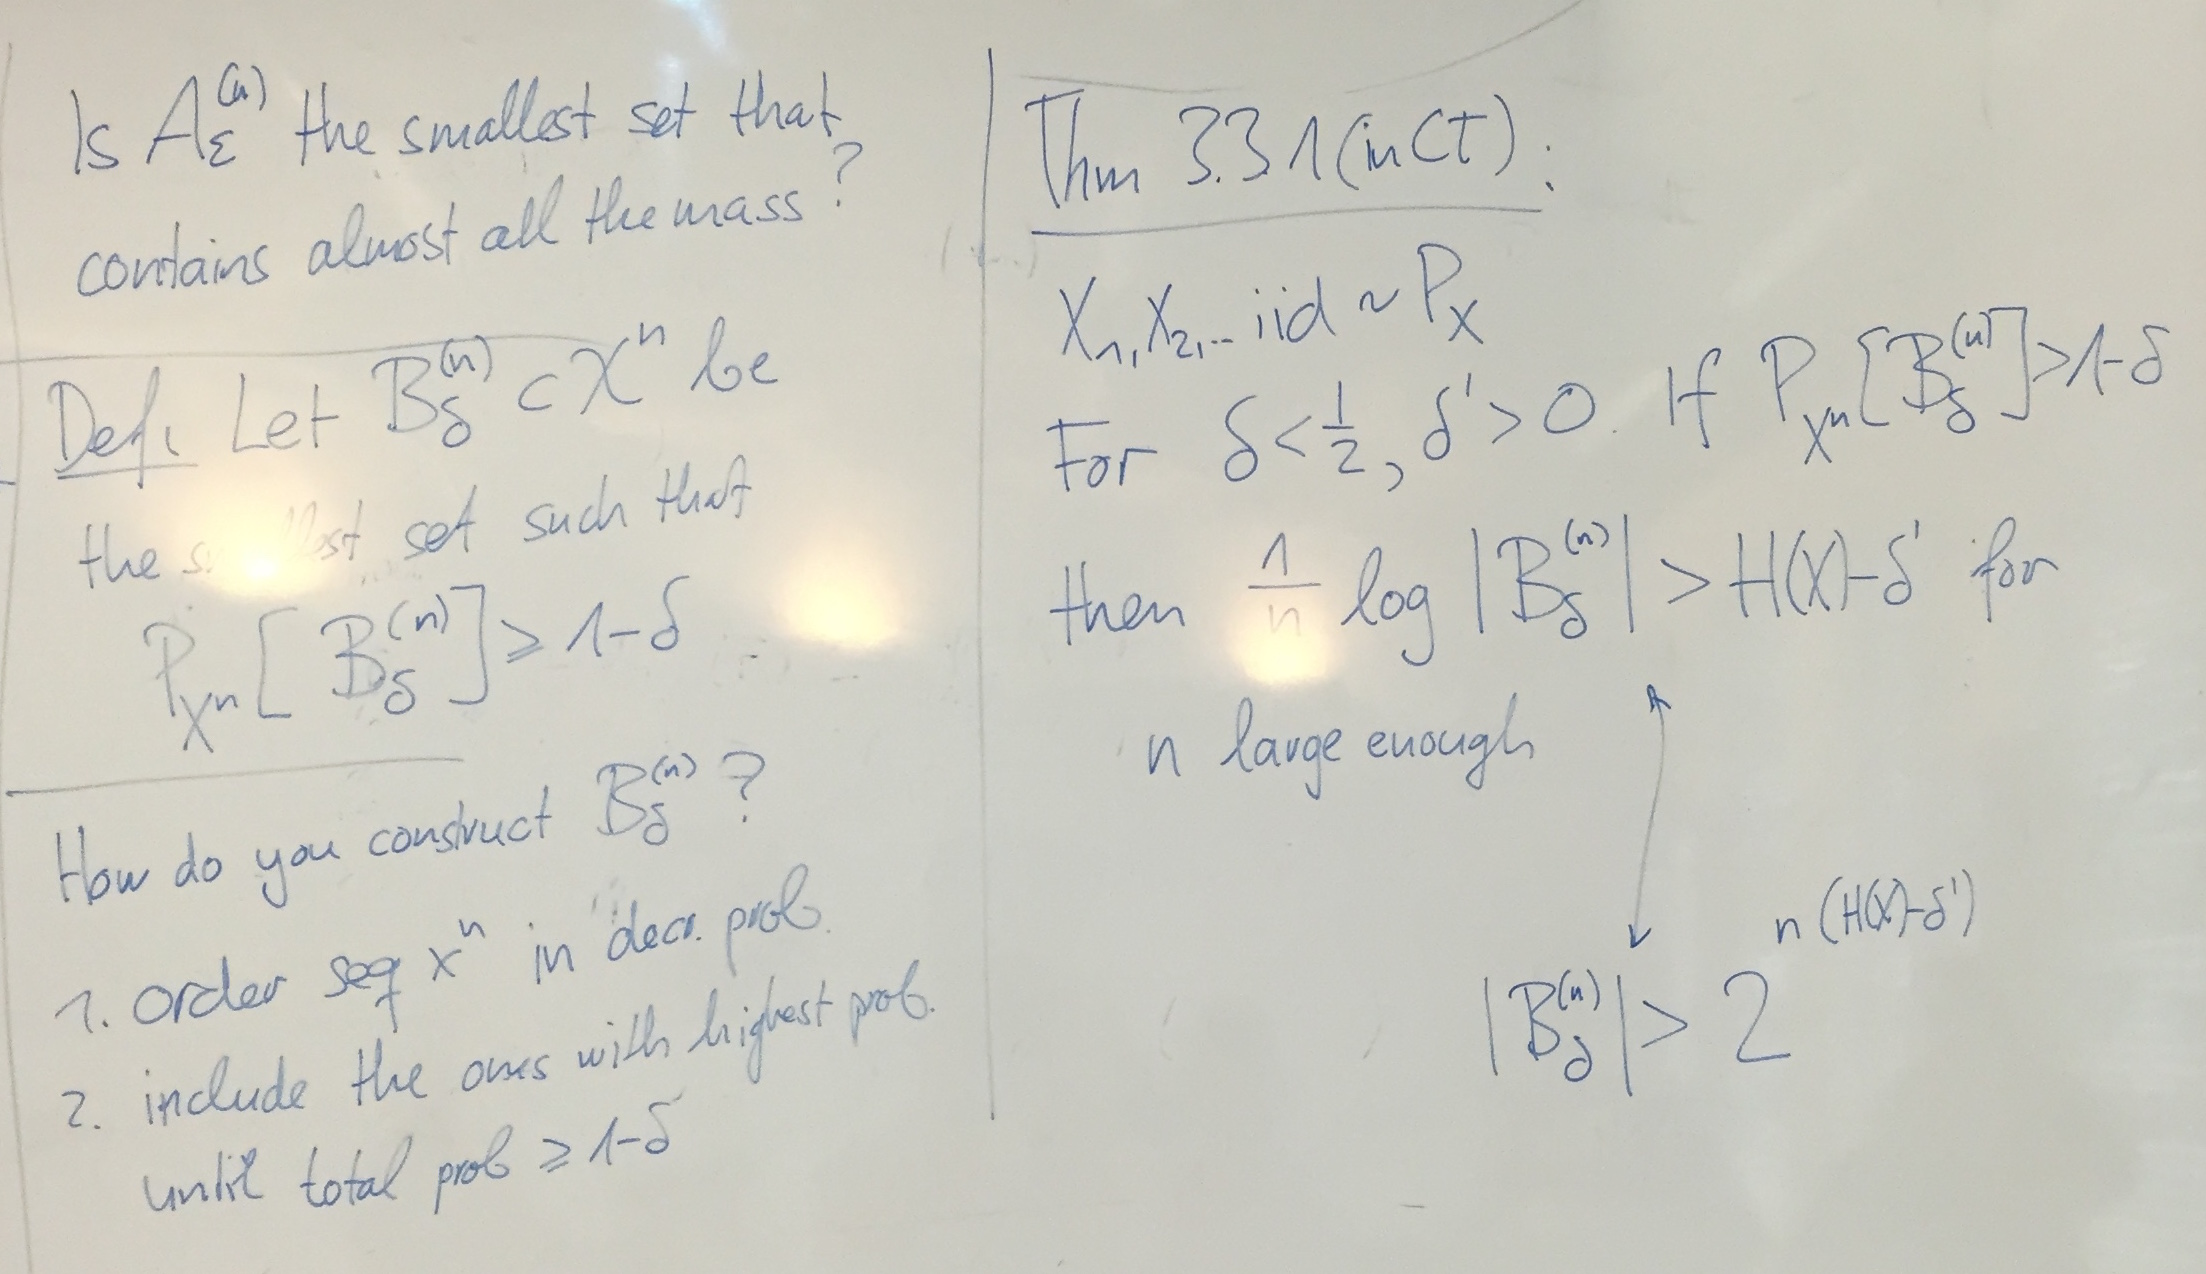 Is A_ε^(n) the smallest set that
contains almost all the mass?
Def: Let B_δ^(n) ⊂ X^n be
the smallest set such that
P_X^n [B_δ^(n)] ≥ 1-δ
How do you construct B_δ^(n)?
1. order seq x^n in decr. prob.
2. include the ones with highest prob.
until total prob ≥ 1-δ
Thm 3.3.1 (in CT):
X_1, X_2, ... iid ~ P_X
For δ < 1/2, δ' > 0. If P_X^n [B_δ^(n)] > 1-δ
then 1/n log |B_δ^(n)| > H(X)-δ' for
n large enough
|B_δ^(n)| > 2^n(H(X)-δ')